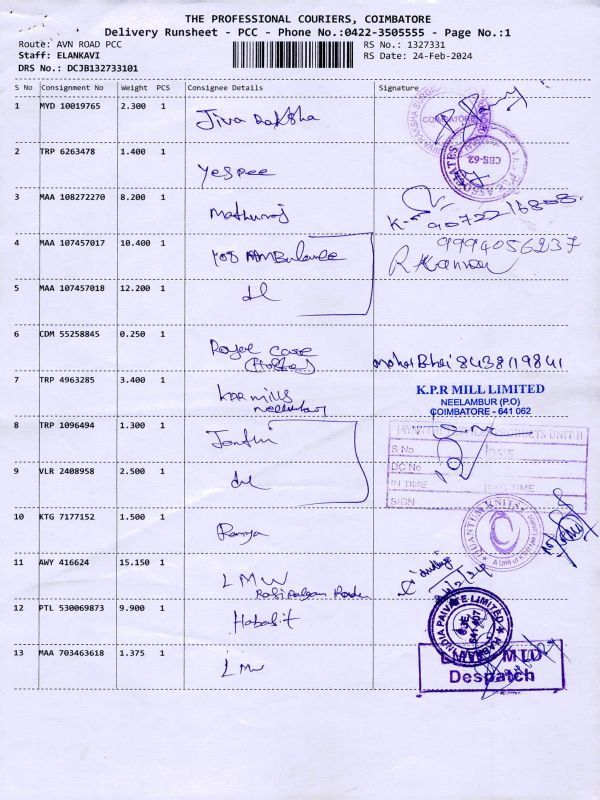 THE PROFESSIONAL COURIERS, COIMBATORE
Delivery Runsheet - PCC - Phone No.:0422-3505555 - Page No.:1
Route: AVN ROAD PCC
RS No.: 1327331
Staff: ELANKAVI
RS Date: 24-Feb-2024
DRS No.: DCJB132733101
S No Consignment No Weight PCS Consignee Details Signature
1 MYD 10019765 2.300 1 Jiva Daksha
COIMBATORE
2 TRP 6263478 1.400 1 Yes pee
ASSOCIATES
CBE-62
3 MAA 108272270 8.200 1 Mathuraj
90722 16808
4 MAA 107457017 10.400 1 108 AMBulance
9994056237
R Kannan
5 MAA 107457018 12.200 1 dl
6 CDM 55258845 0.250 1 Royal care
(Hostel)
8438119841
7 TRP 4963285 3.400 1 KPR mills
Neelambur
K.P.R MILL LIMITED
NEELAMBUR (P.O)
COIMBATORE - 641 062
8 TRP 1096494 1.300 1
UNIT II
S.No
DATE
DC No
IN TIME
TIME
SIGN
9 VLR 2408958 2.500 1
10 KTG 7177152 1.500 1 Ramya
QUANTUM KNITS
11 AWY 416624 15.150 1 LMW
12 PTL 530069873 9.900 1 Habasit
INDIA PRIVATE LIMITED
13 MAA 703463618 1.375 1 LMW
Despatch